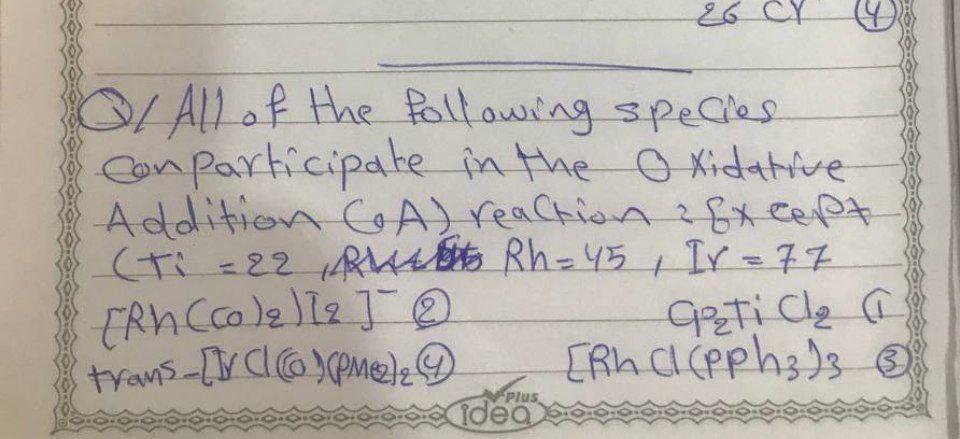 26 Cr ④
Q/ All of the following species
can participate in the Oxidative
Addition (OA) reaction : Except
(Ti = 22 , Rh = 45 , Ir = 77
[Rh(CO)2)I2]⁻ ② Cp2TiCl2 ①
trans-[IrCl(CO)(PMe3)2 ④ [RhCl(PPh3)3 ③
Plus
idea